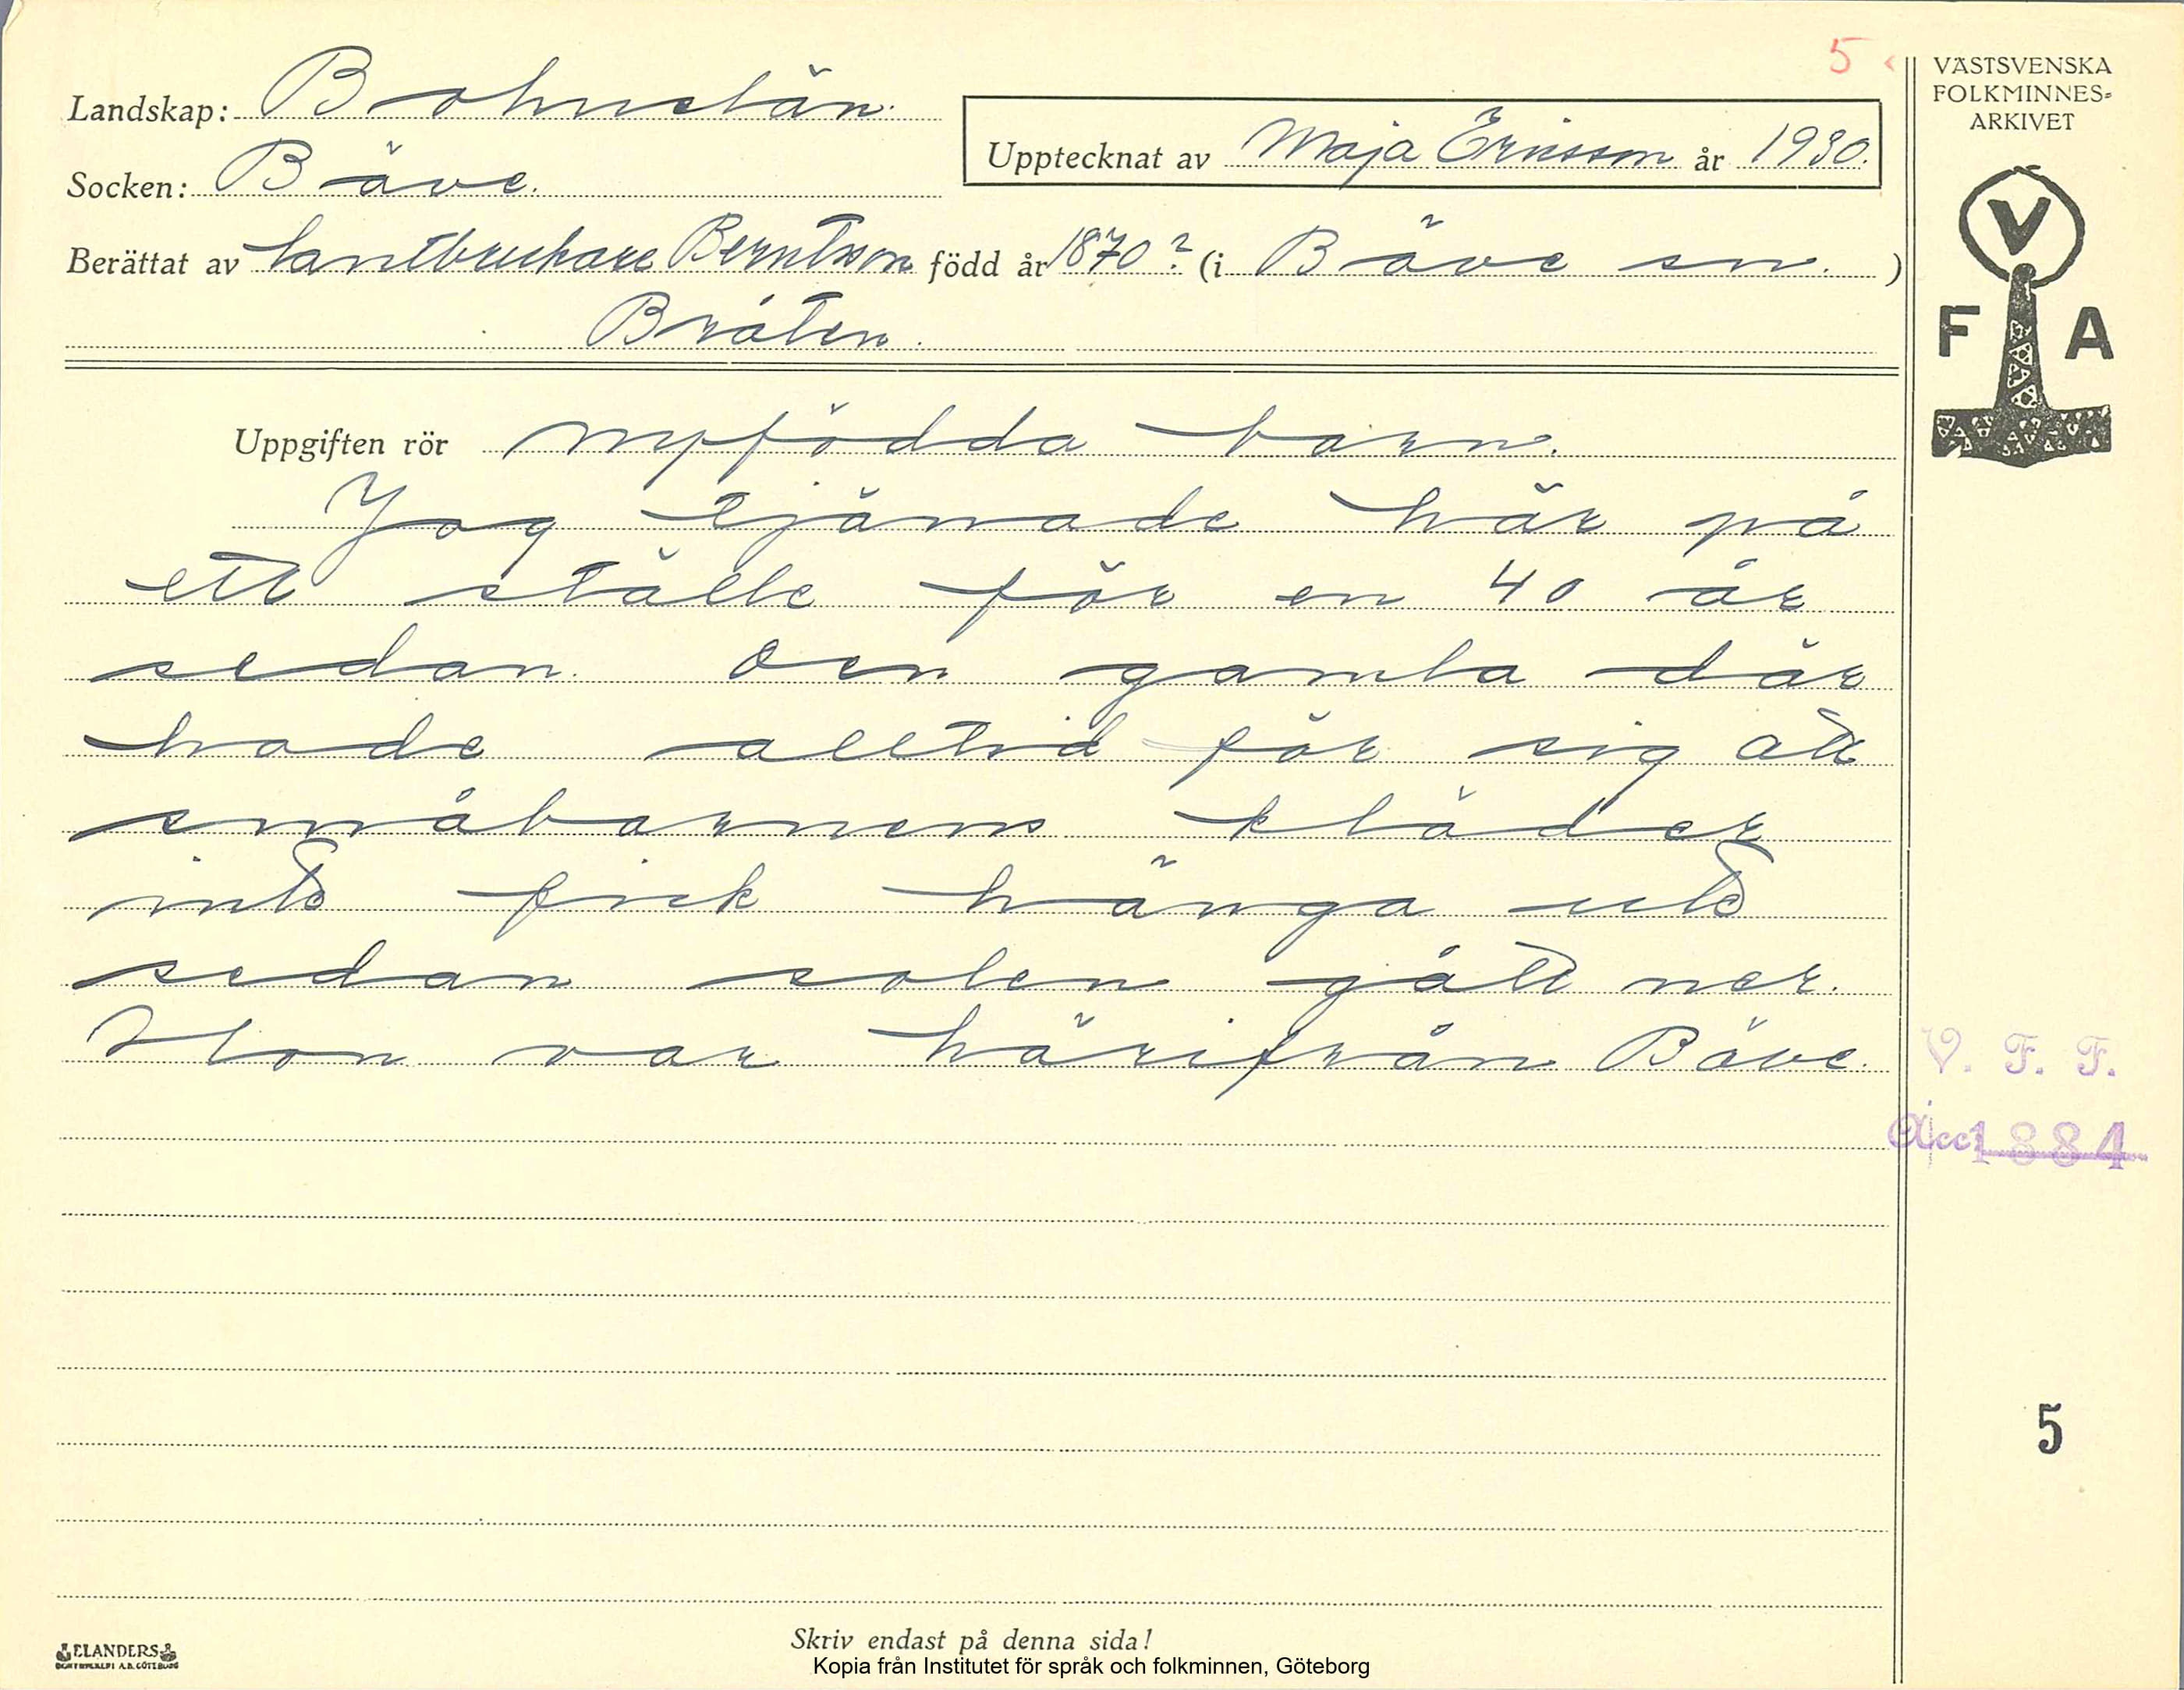 5
Landskap: Bohuslän.
Socken: Bäve.
Upptecknat av Maja Ericsson år 1930.
Berättat av Lantbrukare Berntsson född år 1870? (i Bäve sn. )
Bråten.
Uppgiften rör nyfödda barn.
Jag tjänade här på
ett ställe för en 40 år
sedan. Den gamla där
hade alltid för sig att
småbarnens kläder
inte fick hänga ute
sedan solen gått ner.
Hon var härifrån Bäve.
VÄSTSVENSKA
FOLKMINNES-
ARKIVET
V
F A
V. F. F.
Acc 1884
5
Skriv endast på denna sida!
Kopia från Institutet för språk och folkminnen, Göteborg
ELANDERS